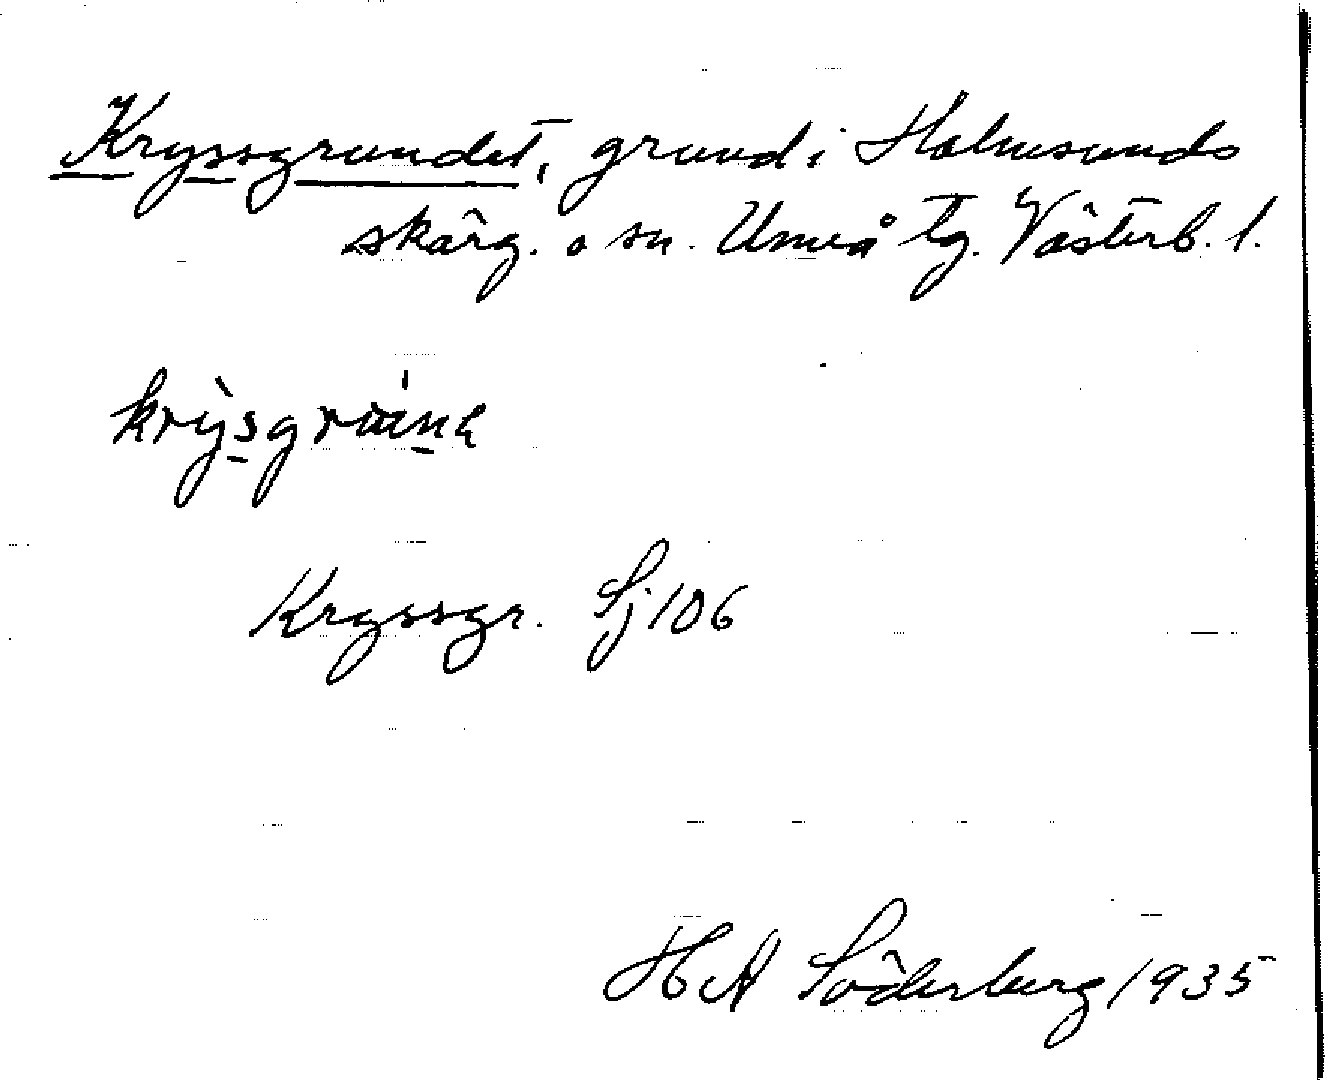 Kryssgrundet, grund i Holmsunds
skärg. o sn. Umeå tg. Västerb. l.
Kryssgr. Sj 106
H A Söderberg 1935